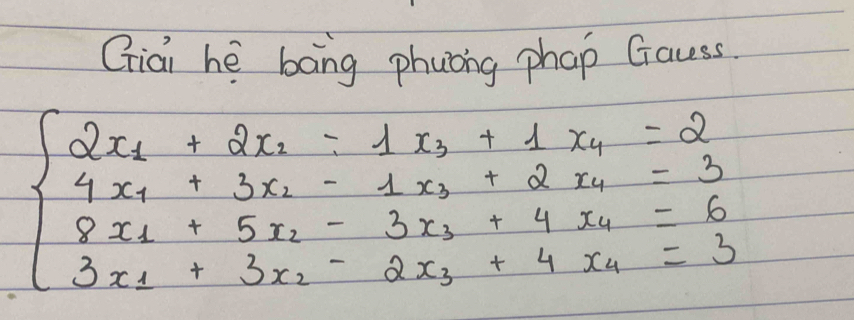 Giải hệ bằng phương pháp Gauss.
2x₁ + 2x₂ - 1x₃ + 1x₄ = 2
4x₁ + 3x₂ - 1x₃ + 2x₄ = 3
8x₁ + 5x₂ - 3x₃ + 4x₄ = 6
3x₁ + 3x₂ - 2x₃ + 4x₄ = 3